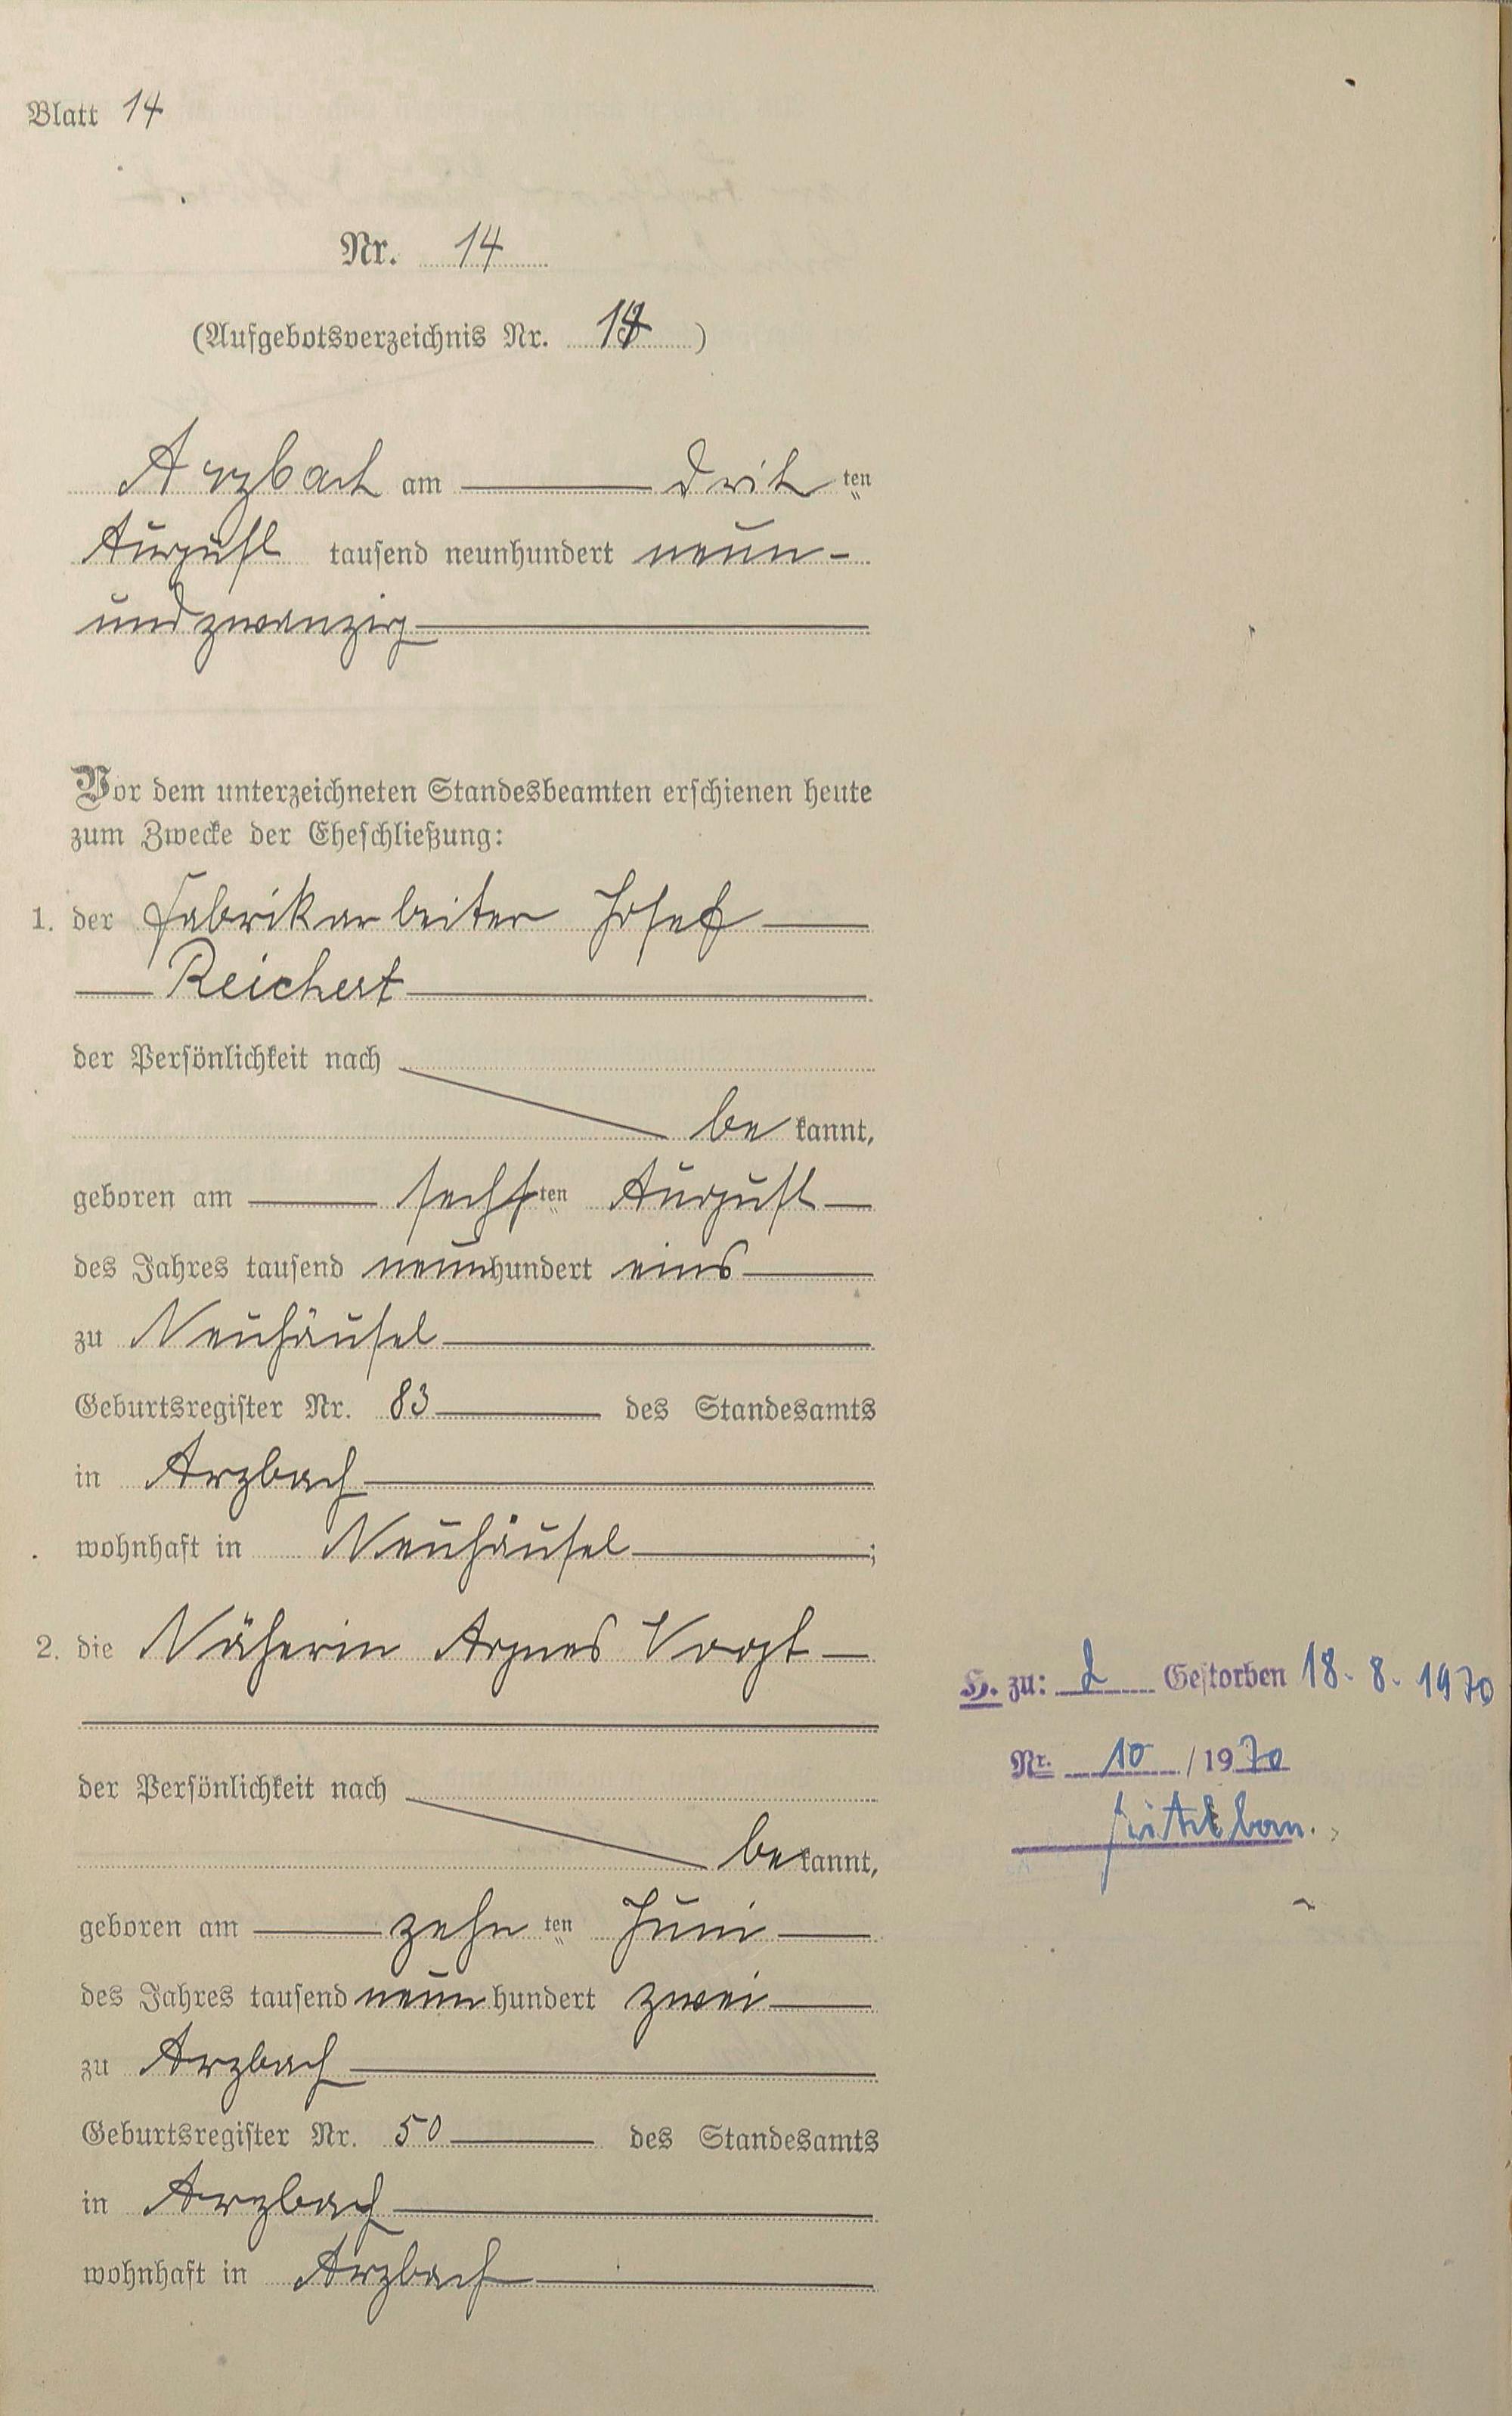 Blatt 14
Nr. 14
(Aufgebotsverzeichnis Nr. 14)
Arzbach am drit ten
August tausend neunhundert neun-
undzwanzig
Vor dem unterzeichneten Standesbeamten erschienen heute
zum Zwecke der Eheschließung:
1. der Fabrikarbeiter Josef
Reichert
der Persönlichkeit nach
be kannt,
geboren am sechsten August
des Jahres tausend neunhundert eins
zu Neuhäusel
Geburtsregister Nr. 83 des Standesamts
in Arzbach
wohnhaft in Neuhäusel;
2. die Näherin Agnes Vogt
der Persönlichkeit nach
be kannt,
geboren am zehn ten Juni
des Jahres tausend neun hundert zwei
zu Arzbach
Geburtsregister Nr. 50 des Standesamts
in Arzbach
wohnhaft in Arzbach
H. zu: 2 Gestorben 18.8.1970
Nr. 10 / 1970